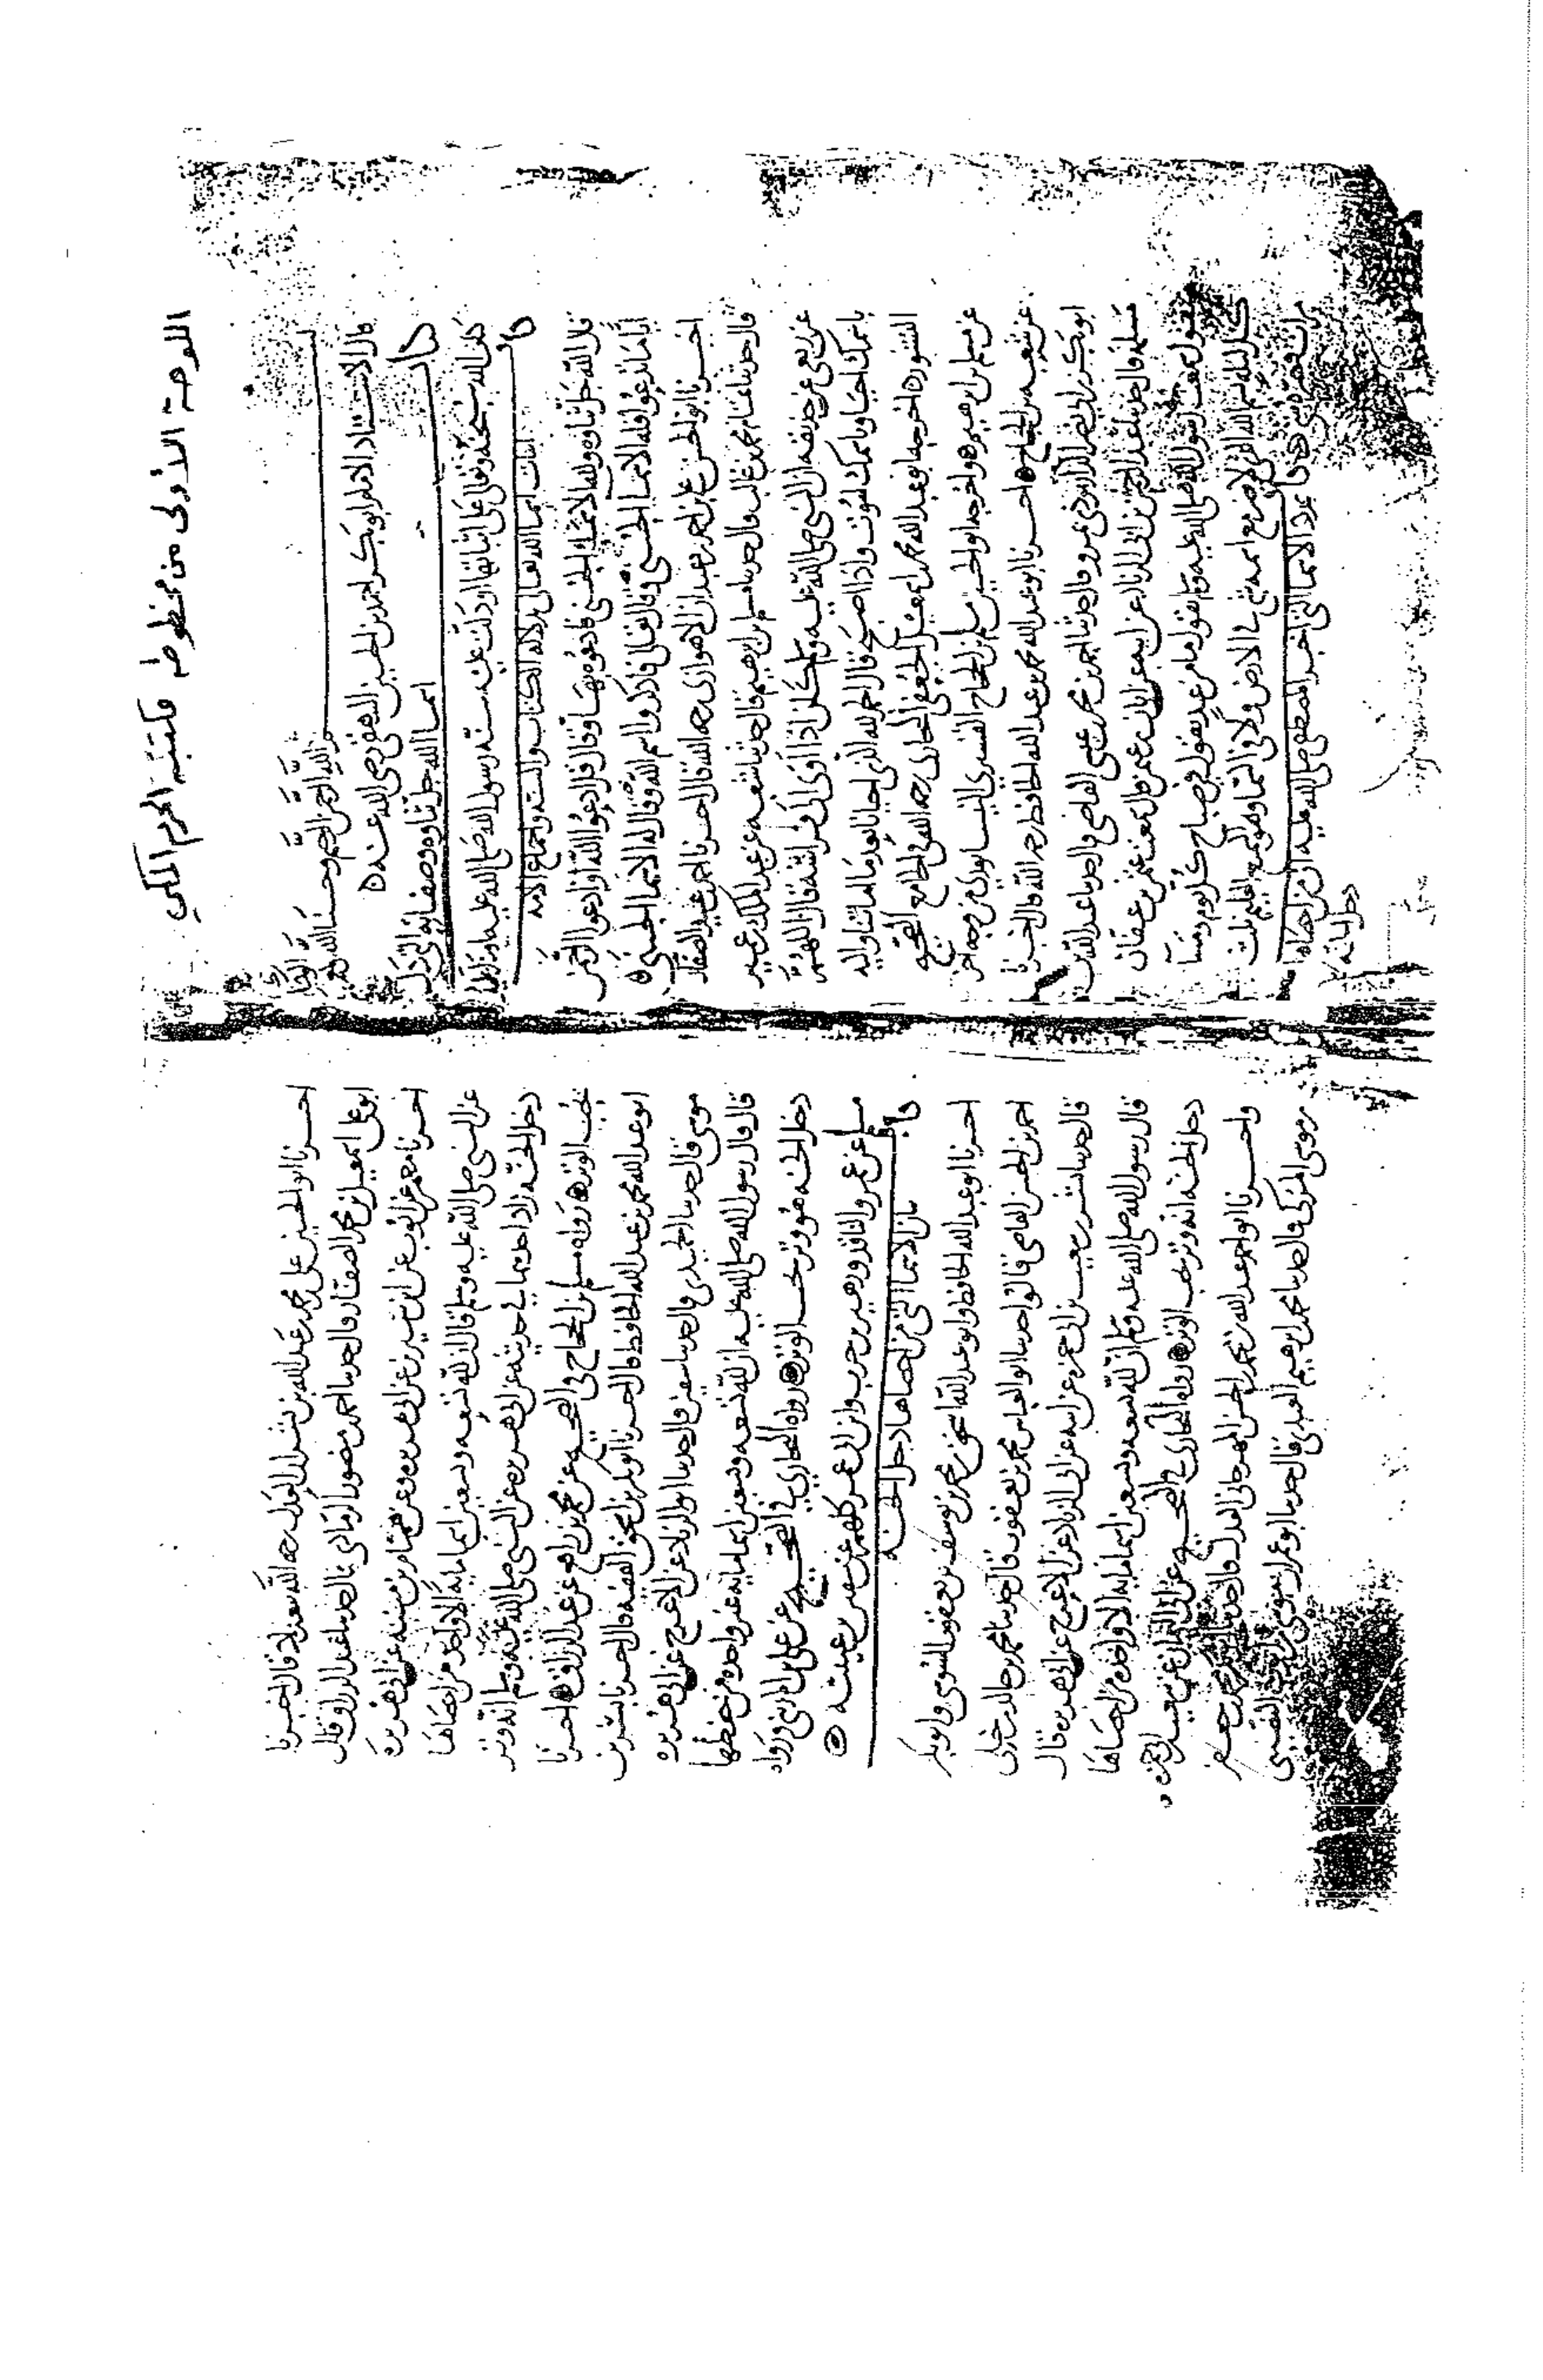 اللوحة الأولى من مخطوطة مكتبة الحرم المكي
بسم الله الرحمن الرحيم وحسبنا الله
قال الاستاذ الامام ابو بكر احمد بن الحسين البيهقي رضي الله عنه
باب
اسما الله جل ثناوه وصفاته التي دل
كتاب الله سبحنه وتعالى على اثباتها او دلت عليه سنة رسول الله صلى الله عليه وسلم
باب
اثبات اسما الله تعالى بدلالة الكتاب والسنة واجماع الامة
قال الله جل ثناوه ولله الاسما الحسنى فادعوه بها وقال قل ادعوا الله او ادعوا الرحمن
ايا ما تدعوا فله الاسما الحسنى وقال تعالى فاذكروا اسم الله وقال له الاسما الحسنى
اخبرنا ابو الحسن علي بن احمد بن عبدان الاهوازي رحمه الله قال اخبرنا احمد بن عبيد الصفار
قال حدثنا تمتام محمد بن غالب قال حدثنا مسلم بن ابرهيم قال حدثنا شعبة عن عبد الملك بن عمير
عن ربعي عن حذيفة ان النبي صلى الله عليه وسلم كان اذا اوى الى فراشه قال اللهم
باسمك احيا وباسمك اموت واذا اصبح قال الحمد لله الذي احيانا بعد ما اماتنا واليه
النشور اخرجه ابو عبد الله محمد بن اسمعيل الجعفي البخاري رحمه الله في الجامع الصحيح
عن مسلم بن ابرهيم واخرجه ابو الحسين مسلم بن الحجاج القشيري النيسابوري من وجه اخر
عن شعبة بن الحجاج اخبرنا ابو عبد الله محمد بن عبد الله الحافظ رحمه الله قال اخبرنا
ابو بكر بن ابي نصر الداربردي بمرو قال حدثنا احمد بن محمد بن عيسى القاضي قال حدثنا عبد الله بن
مسلمة قال حدثنا عبد الرحمن بن ابي الزناد عن ابيه عن ابان بن عثمن قال سمعت عثمن بن عفان
يقول سمعت رسول الله صلى الله عليه وسلم يقول ما من عبد يقول في صباح كل يوم ومسا
كل ليلة بسم الله الذي لا يضر مع اسمه شي في الارض ولا في السما وهو السميع العليم ثلث
مرات فيضره شي
باب عدد الاسما التي اخبر المصطفى صلى الله عليه ان من احصاها
دخل الجنة
اخبرنا ابو الحسين علي بن محمد بن عبد الله بن بشران العدل رحمه الله ببغداد قال اخبرنا
ابو علي اسمعيل بن محمد الصفار قال حدثنا احمد بن منصور الرمادي قال حدثنا عبد الرزاق قال
اخبرنا معمر عن ايوب عن ابن سيرين عن ابي هريرة وعن همام بن منبه عن ابي هريرة
عن النبي صلى الله عليه وسلم قال ان لله تسعة وتسعين اسما مائة الا واحد من احصاها
دخل الجنة زاد احدهما في حديثه عن ابي هريرة عن النبي صلى الله عليه وسلم انه وتر
يحب الوتر رواه مسلم بن الحجاج في الصحيح عن محمد بن رافع عن عبد الرزاق اخبرنا
ابو عبد الله محمد بن عبد الله الحافظ قال اخبرنا ابو بكر بن اسحق الفقيه قال اخبرنا بشر بن
موسى قال حدثنا الحميدي قال حدثنا سفين قال حدثنا ابو الزناد عن الاعرج عن ابي هريرة
قال قال رسول الله صلى الله عليه ان لله تسعة وتسعين اسما مائة غير واحد من حفظها
دخل الجنة هو وتر يحب الوتر رواه البخاري في الصحيح عن علي بن المديني ورواه
مسلم عن عمرو الناقد وزهير بن حرب وابن ابي عمر كلهم عن سفين بن عيينة
باب
بيان الاسما التي من احصاها دخل الجنة
اخبرنا ابو عبد الله الحافظ وابو عبد الله اسحق بن محمد بن يوسف بن يعقوب السوسي وابو بكر
احمد بن الحسن القاضي قالوا حدثنا ابو العباس محمد بن يعقوب قال حدثنا محمد بن خالد بن خلي
قال حدثنا بشر بن شعيب بن ابي حمزة عن ابيه عن ابي الزناد عن الاعرج عن ابي هريرة قال
قال رسول الله صلى الله عليه وسلم ان لله تسعة وتسعين اسما مائة الا واحدة من احصاها
دخل الجنة انه وتر يحب الوتر رواه البخاري في الصحيح عن ابي اليمان عن شعيب بن ابي حمزة
واخبرنا ابو احمد عبد الله بن محمد بن الحسن المهرجاني العدل قال حدثنا ابو بكر محمد بن جعفر
المزكي قال حدثنا محمد بن ابرهيم العبدي قال حدثنا ابو عمران موسى بن ايوب النصيبي